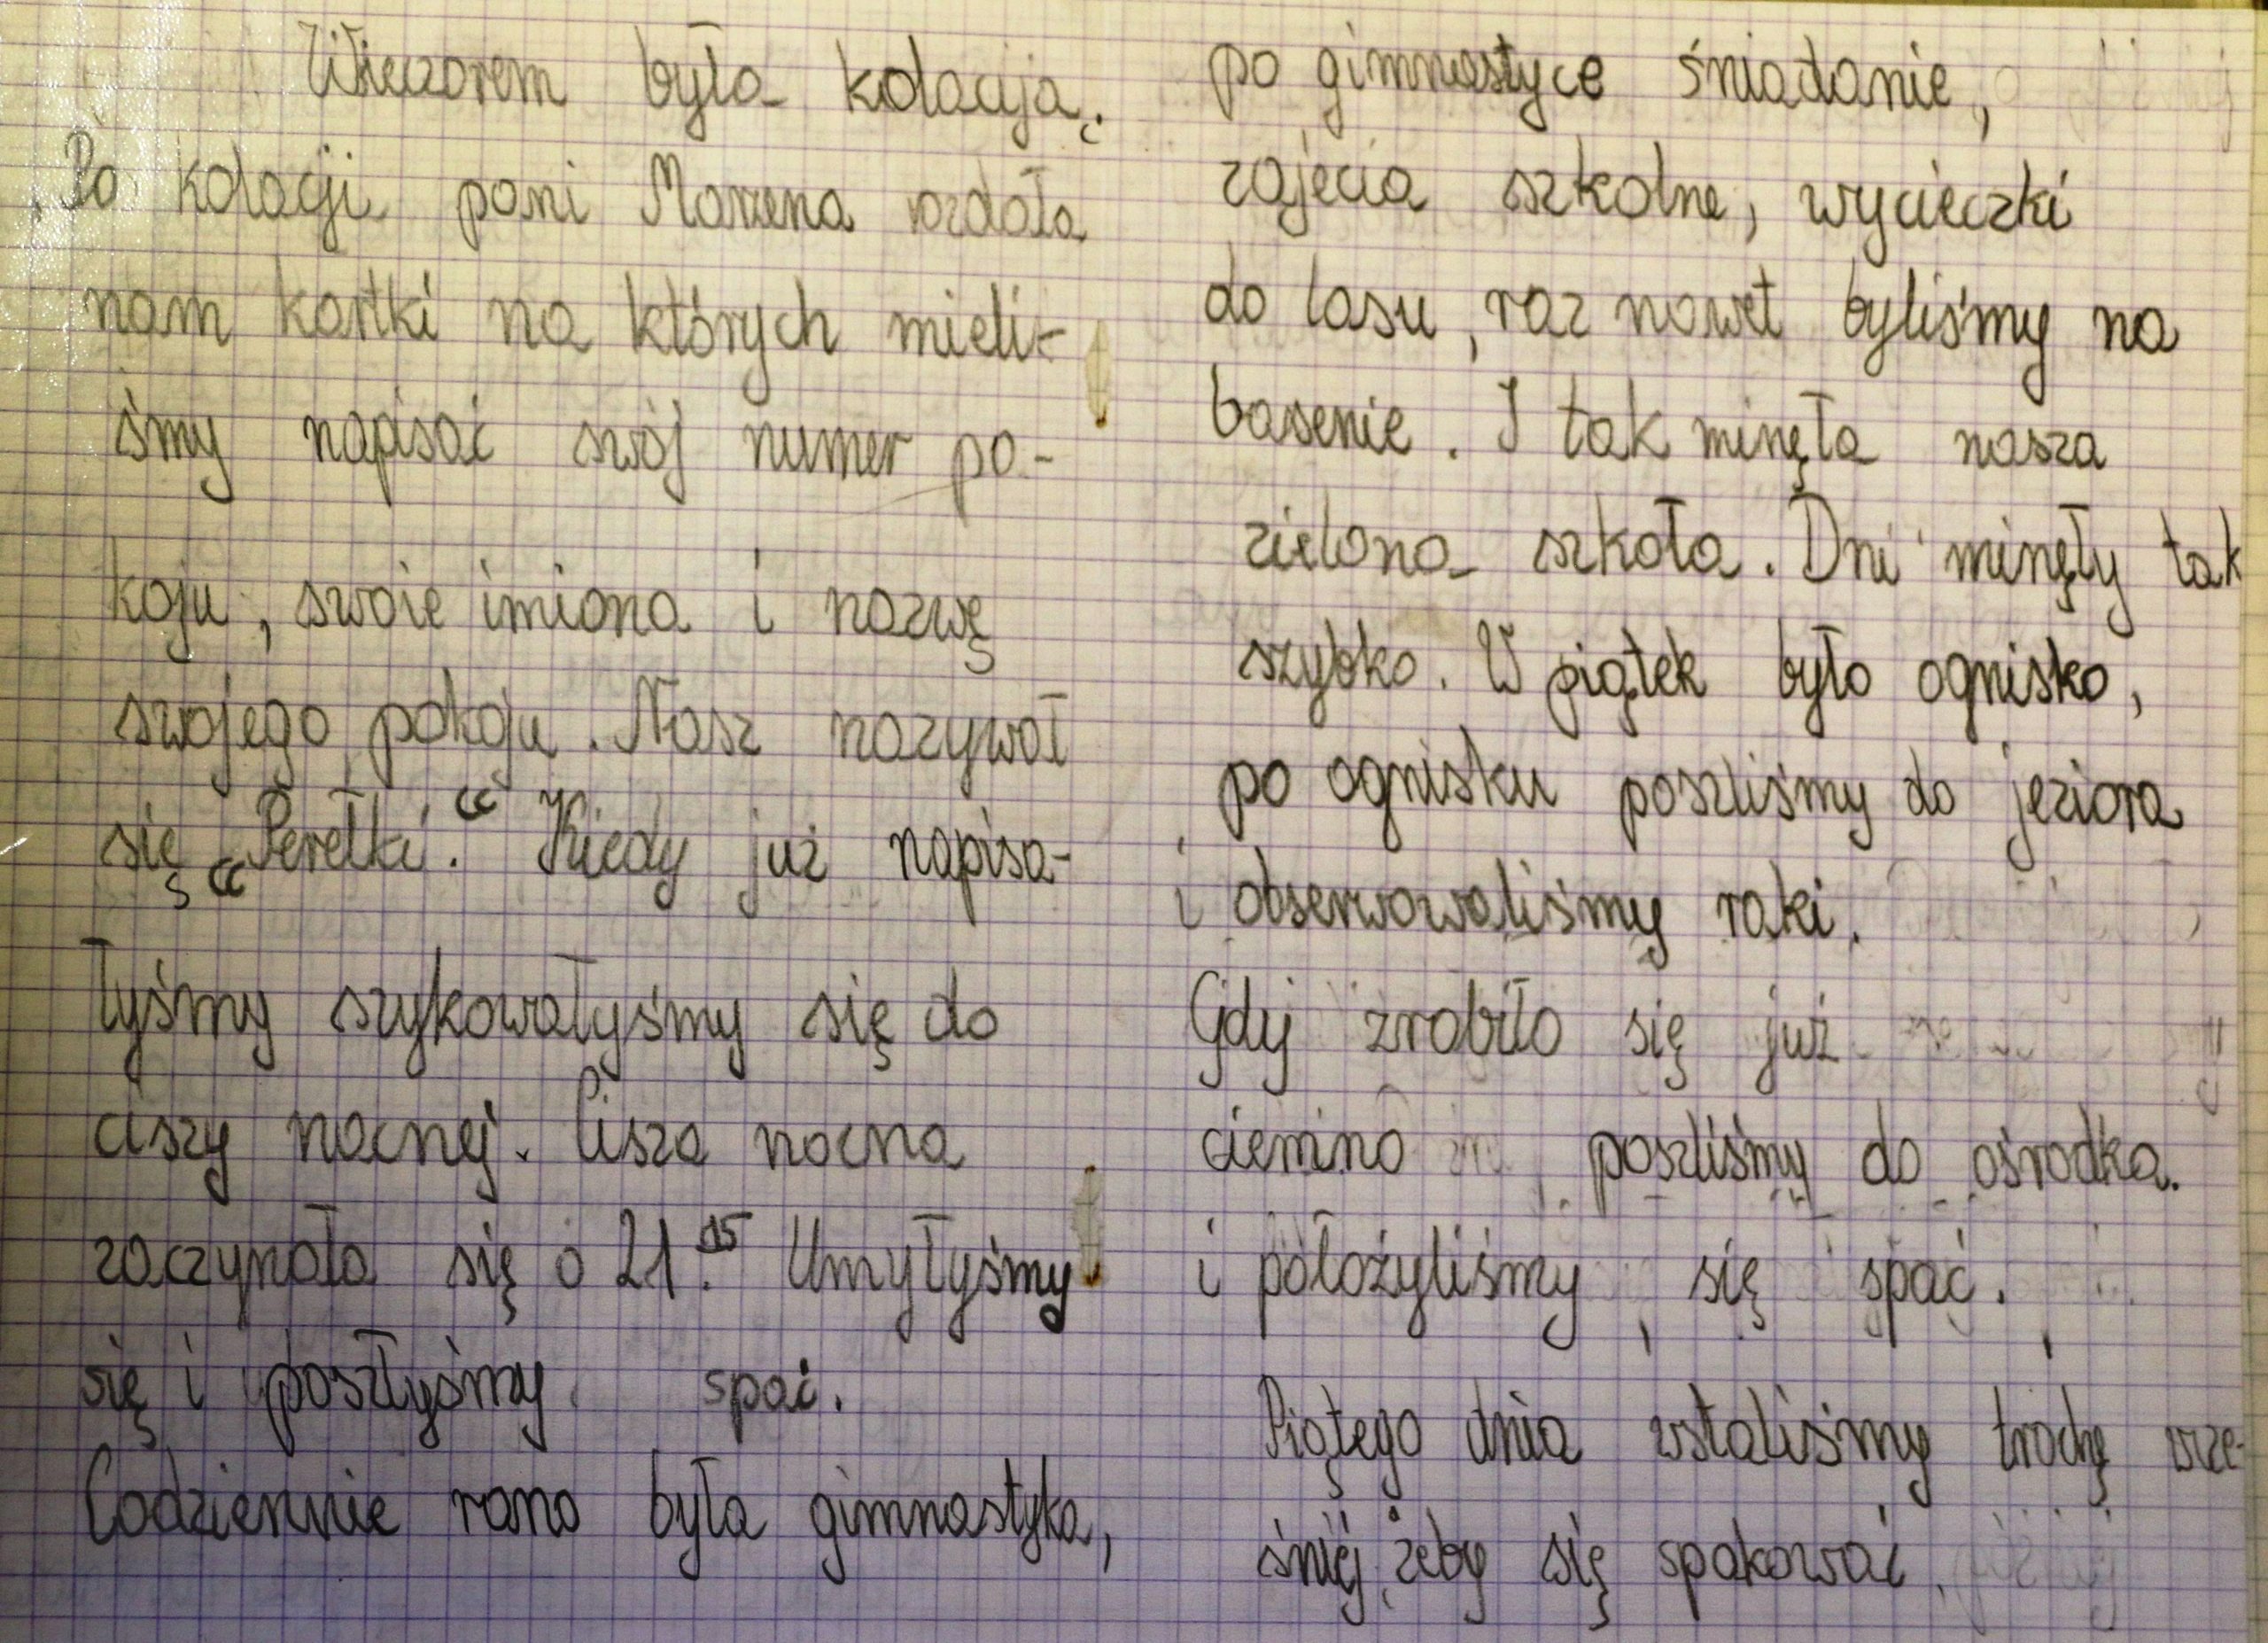 Wieczorem była kolacja.
Po kolacji pani Marzena rozdała
nam kartki na których mieli-
śmy napisać swój numer po-
koju, swoie imiona i nazwę
swojego pokoju. Nasz nazywał
się „Perełki.“ Kiedy już napisa-
łyśmy szykowałyśmy się do
ciszy nocnej. Cisza nocna
zaczynała się o 21.15 Umyłyśmy
się i poszłyśmy spać.
Codziennie rano była gimnastyka,
po gimnastyce śniadanie,
zajęcia szkolne, wycieczki
do lasu, raz nawet byliśmy na
basenie. I tak minęła nasza
zielona szkoła. Dni minęły tak
szybko. W piątek było ognisko,
po ognisku poszliśmy do jeziora
i obserwowaliśmy raki.
Gdy zrobiło się już
ciemno poszliśmy do ośrodka.
i położyliśmy się spać.
Piątego dnia wstaliśmy trochę wcze-
śniej, żeby się spakować